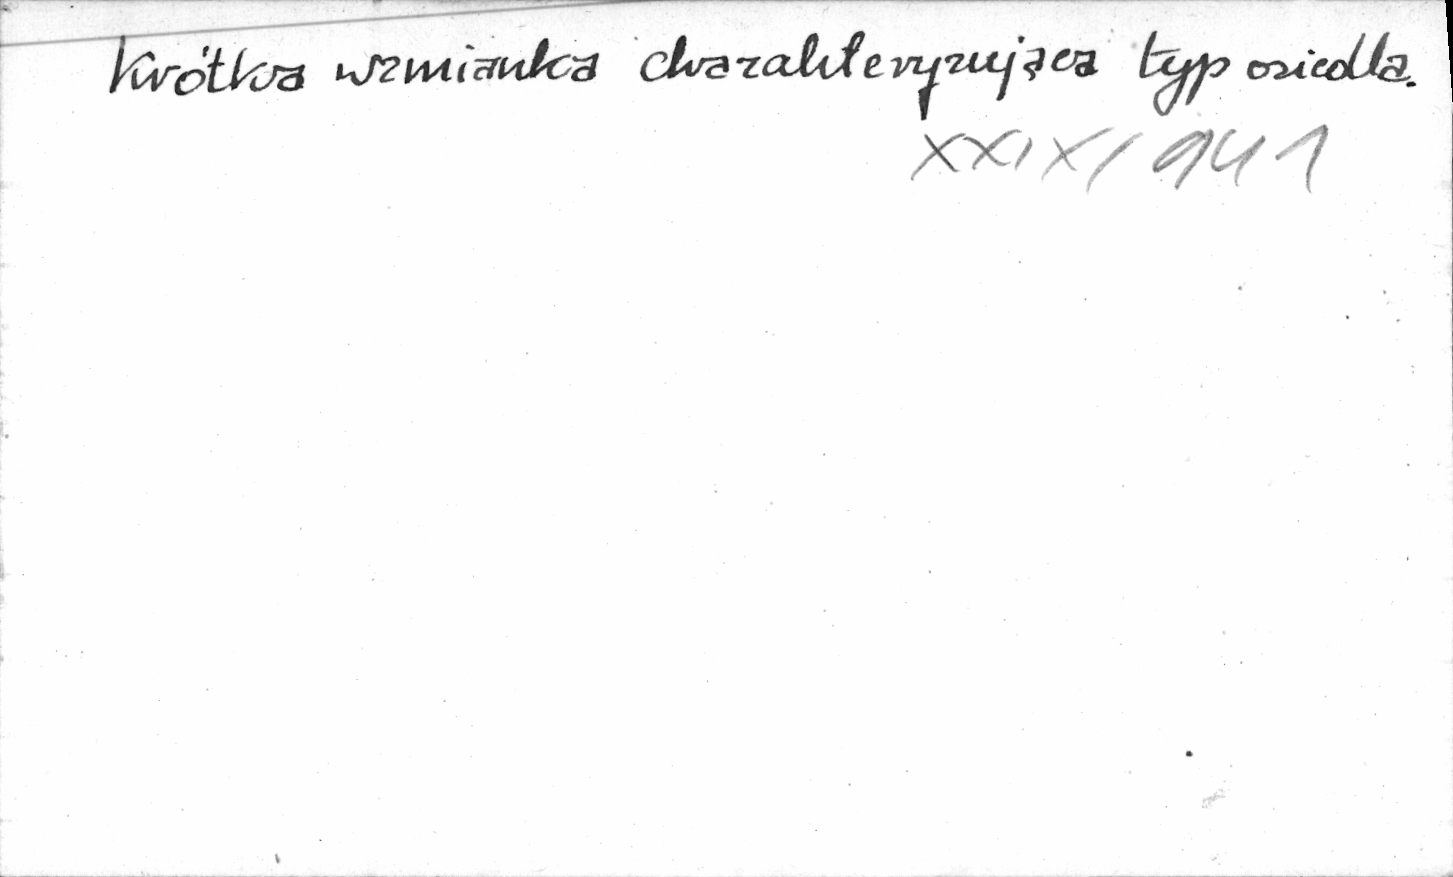 Krótka wzmianka charakteryzująca typ osiedla.
XXIX/941